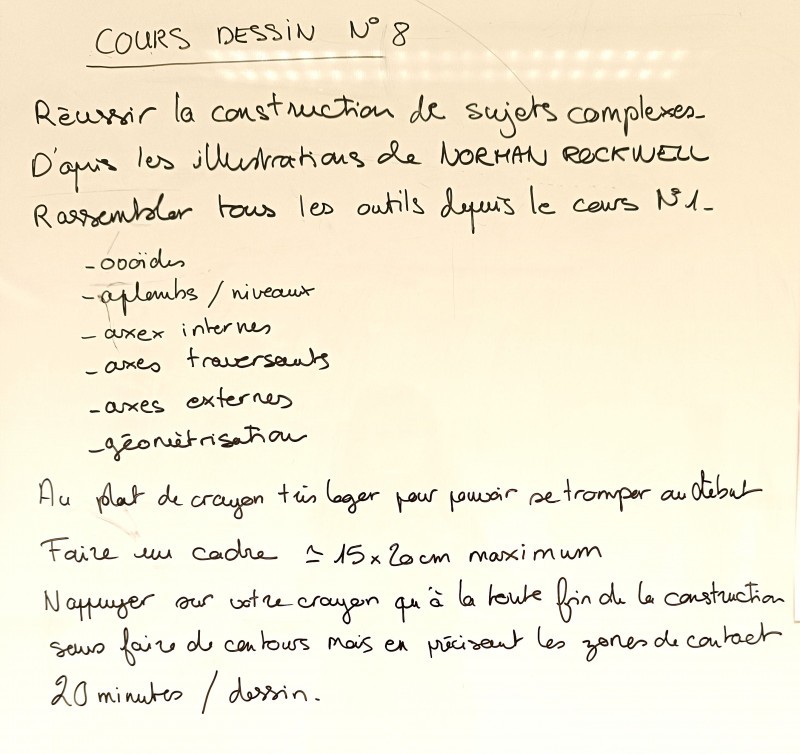 COURS DESSIN N° 8
Réussir la construction de sujets complexes_
D'après les illustrations de NORMAN ROCKWELL
Rassembler tous les outils depuis le cours N°1_
- ovoïdes
- aplombs / niveaux
- axex internes
- axes traversants
- axes externes
- géométrisation
Au plat de crayon très léger pour pouvoir se tromper au début
Faire un cadre ≃ 15 x 20 cm maximum
N'appuyer sur votre crayon qu'à la toute fin de la construction
sans faire de contours mais en précisant les zones de contact
20 minutes / dessin.